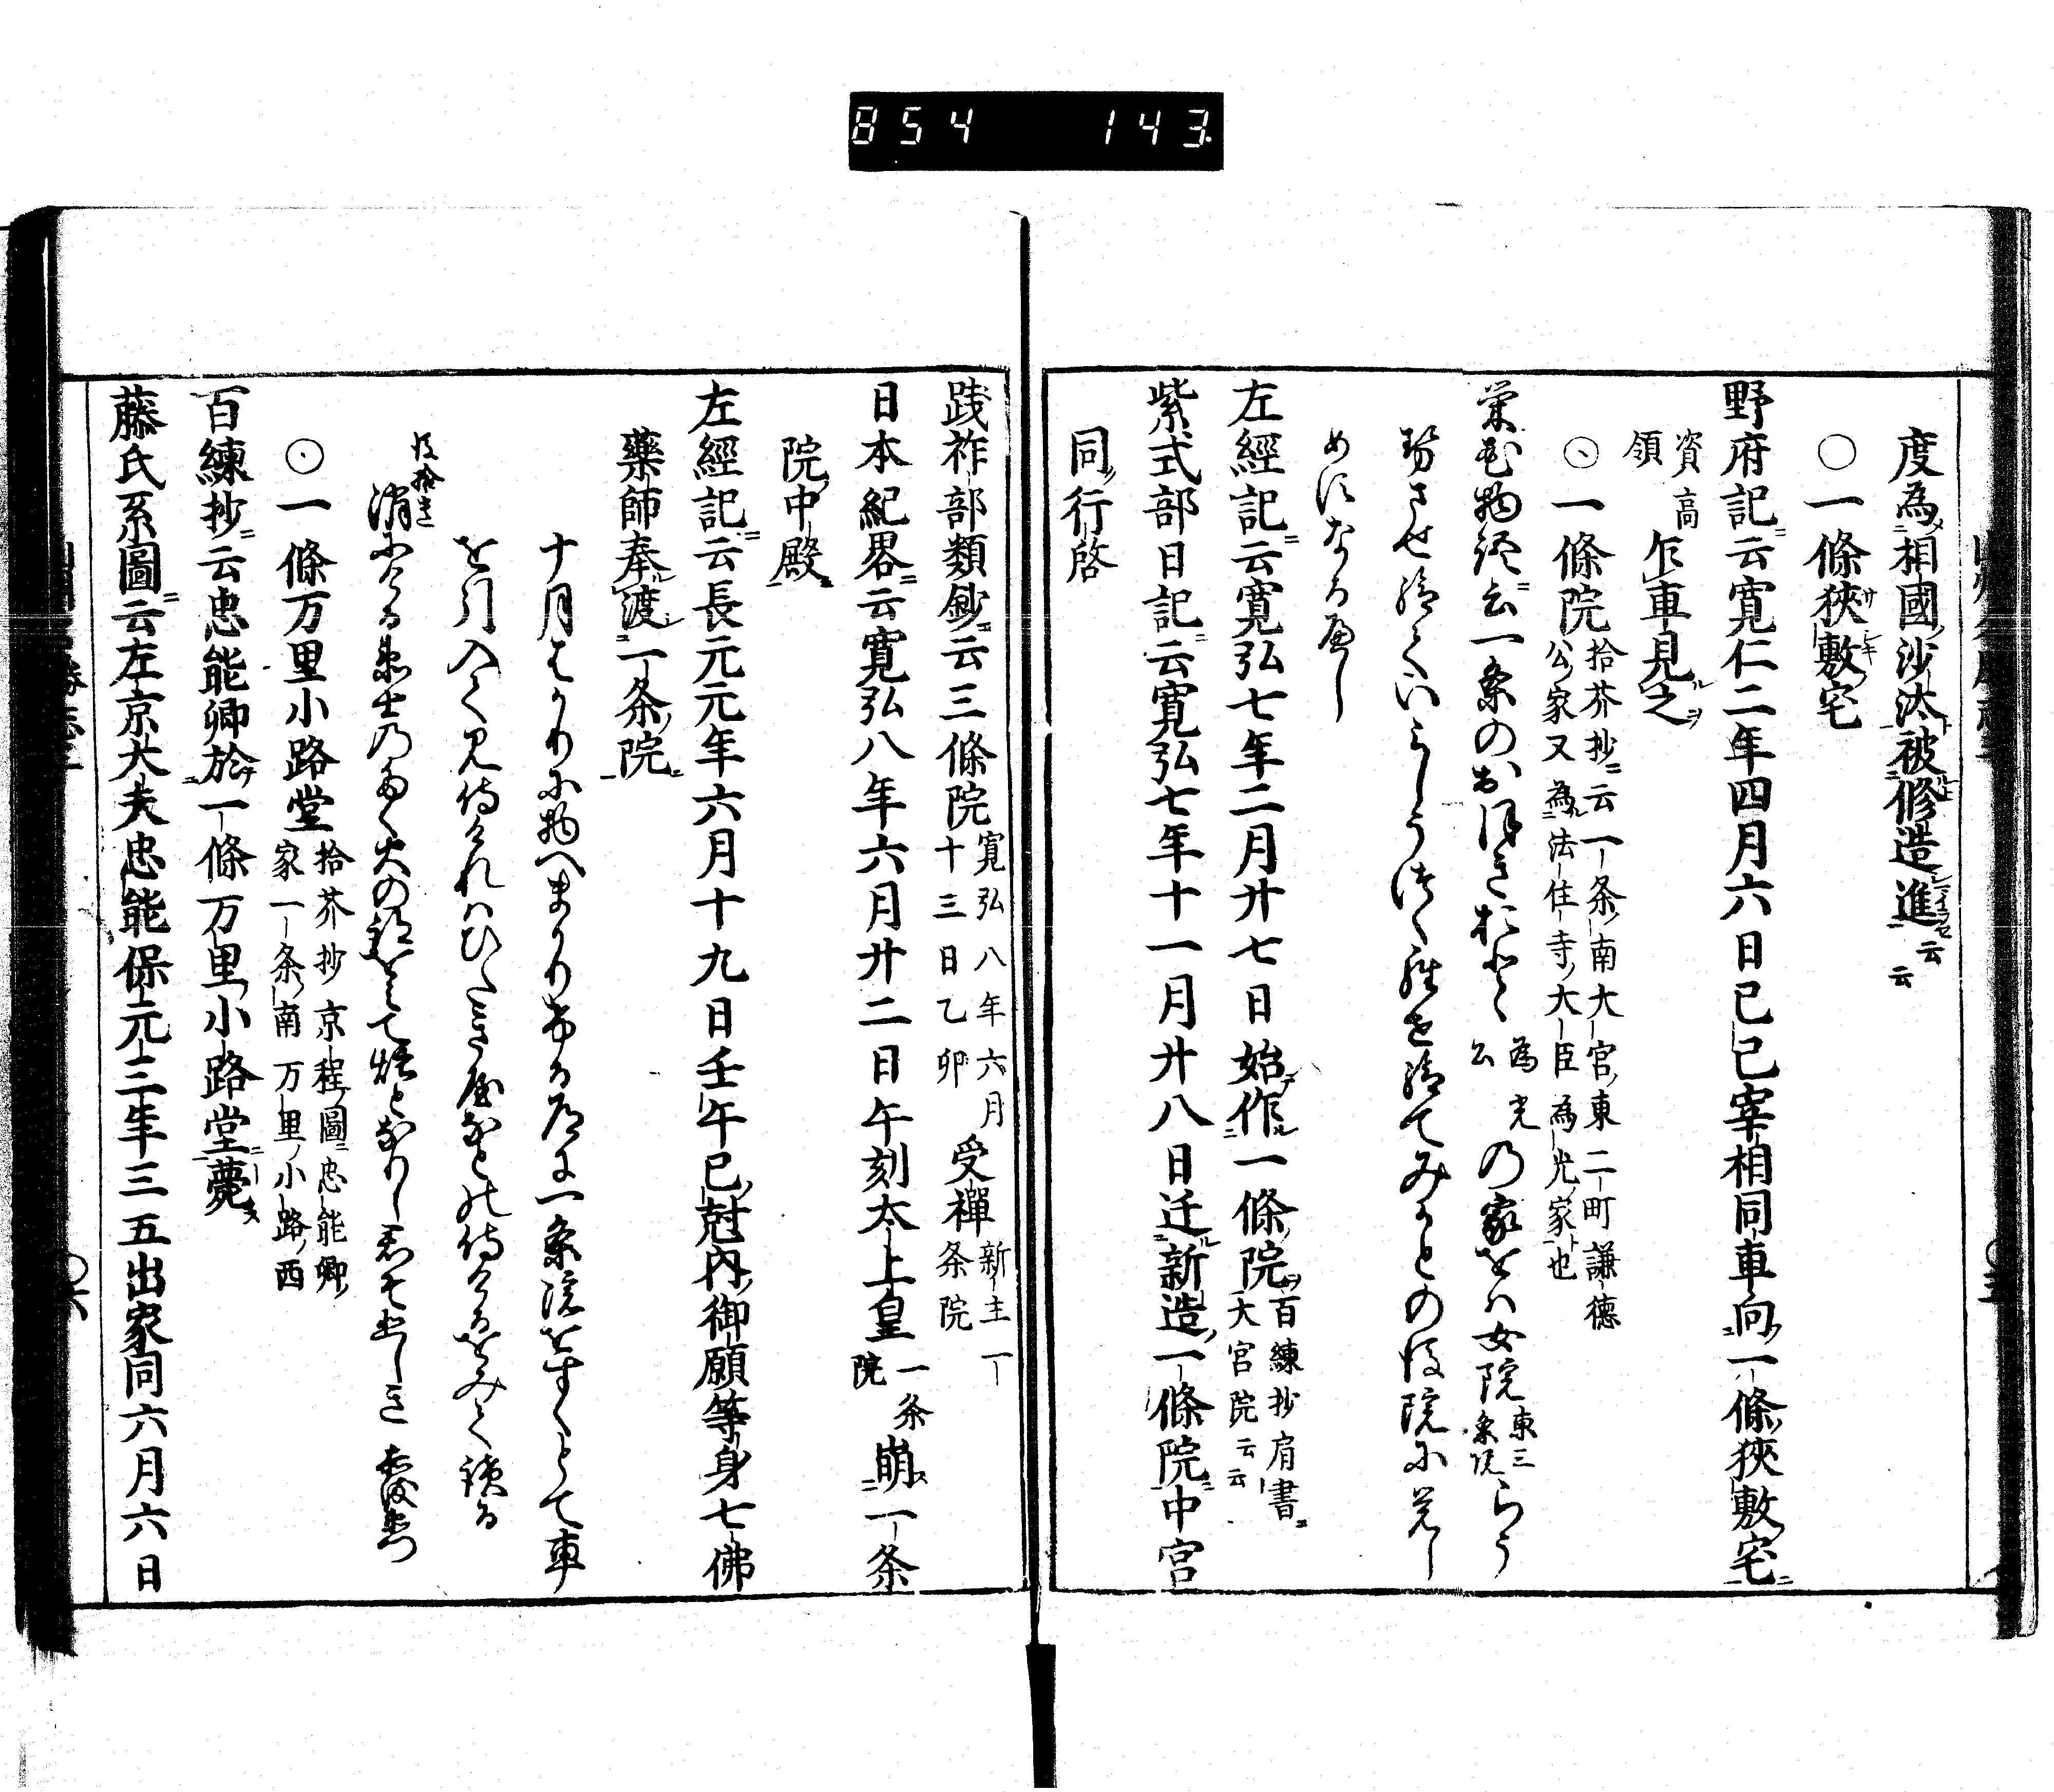 854 143
度為相國沙汰被修造進云云
○一條狹敷宅
野府記云寛仁二年四月六日己巳宰相同車向一條狹敷宅
資高領乍車見之
○一條院拾芥抄云一条南大宮東二町謙德公家又為法住寺大臣為光家也
栄花物語云一条のおほきおとゝ為光公の家をは女院東三条院らう
勢させ給ていみしうつくらせ給てみかとの後院に覚し
めすなるへし
左經記云寛弘七年二月廿七日始作一條院百練抄肩書大宮院云云
紫式部日記云寛弘七年十一月廿八日迁新造一條院中宮
同行啓
践祚部類鈔云三條院寛弘八年六月十三日乙卯受禪新主一条院
日本紀畧云寛弘八年六月廿二日午刻太上皇一条院崩一条
院中殿
左經記云長元元年六月十九日壬午巳尅内御願等身七佛
藥師奉渡一条院
十月はかりに物へまかりける道に一条院をすくとて車
を引入て見侍けれはひたき屋なとの侍けるをみて読る
後拾遺
消にける衛士のたく火の跡をみて煙となりし君そ悲しき 赤染衛門
○一條万里小路堂拾芥抄京程圖忠能卿家一条南万里小路西
百練抄云忠能卿於一條万里小路堂薨
藤氏系圖云左京大夫忠能保元三年三五出家同六月六日